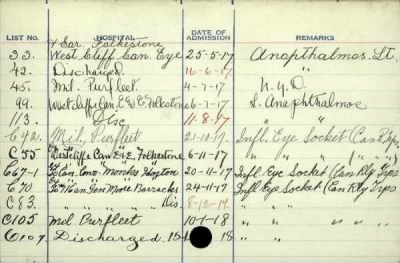 LIST NO. HOSPITAL DATE OF ADMISSION REMARKS
& Ear. Folkestone
33. West Cliff Can. Eye 25-5-17 Anopthalmos. Lt.
42. Discharged. 16-6-17 "
45. Mil. Purfleet. 4-7-17 N.Y.D.
99. West Cliffe Can. E & E. Folkstone 6-7-17 L. Anophthalmos
113. Disc. 11-8-17 "
C42. Mil. Purfleet 21-10-17. Infl. Eye Socket (Can Rly Trps
C55 Westcliffe Can E & E. Folkestone 6-11-17 " " " "
C67-1 Can. Conv. Monks Horton 20-11-17 Infl. Eye Socket (Can Rly Trps
C70 Can Gen Moore Barracks 24-11-17 Infl. Eye Socket (Can Rly Trps
C83 Dis. 8-12-17. "
C105 Mil Purfleet 10-1-18 " " " "
C107. Discharged. 18